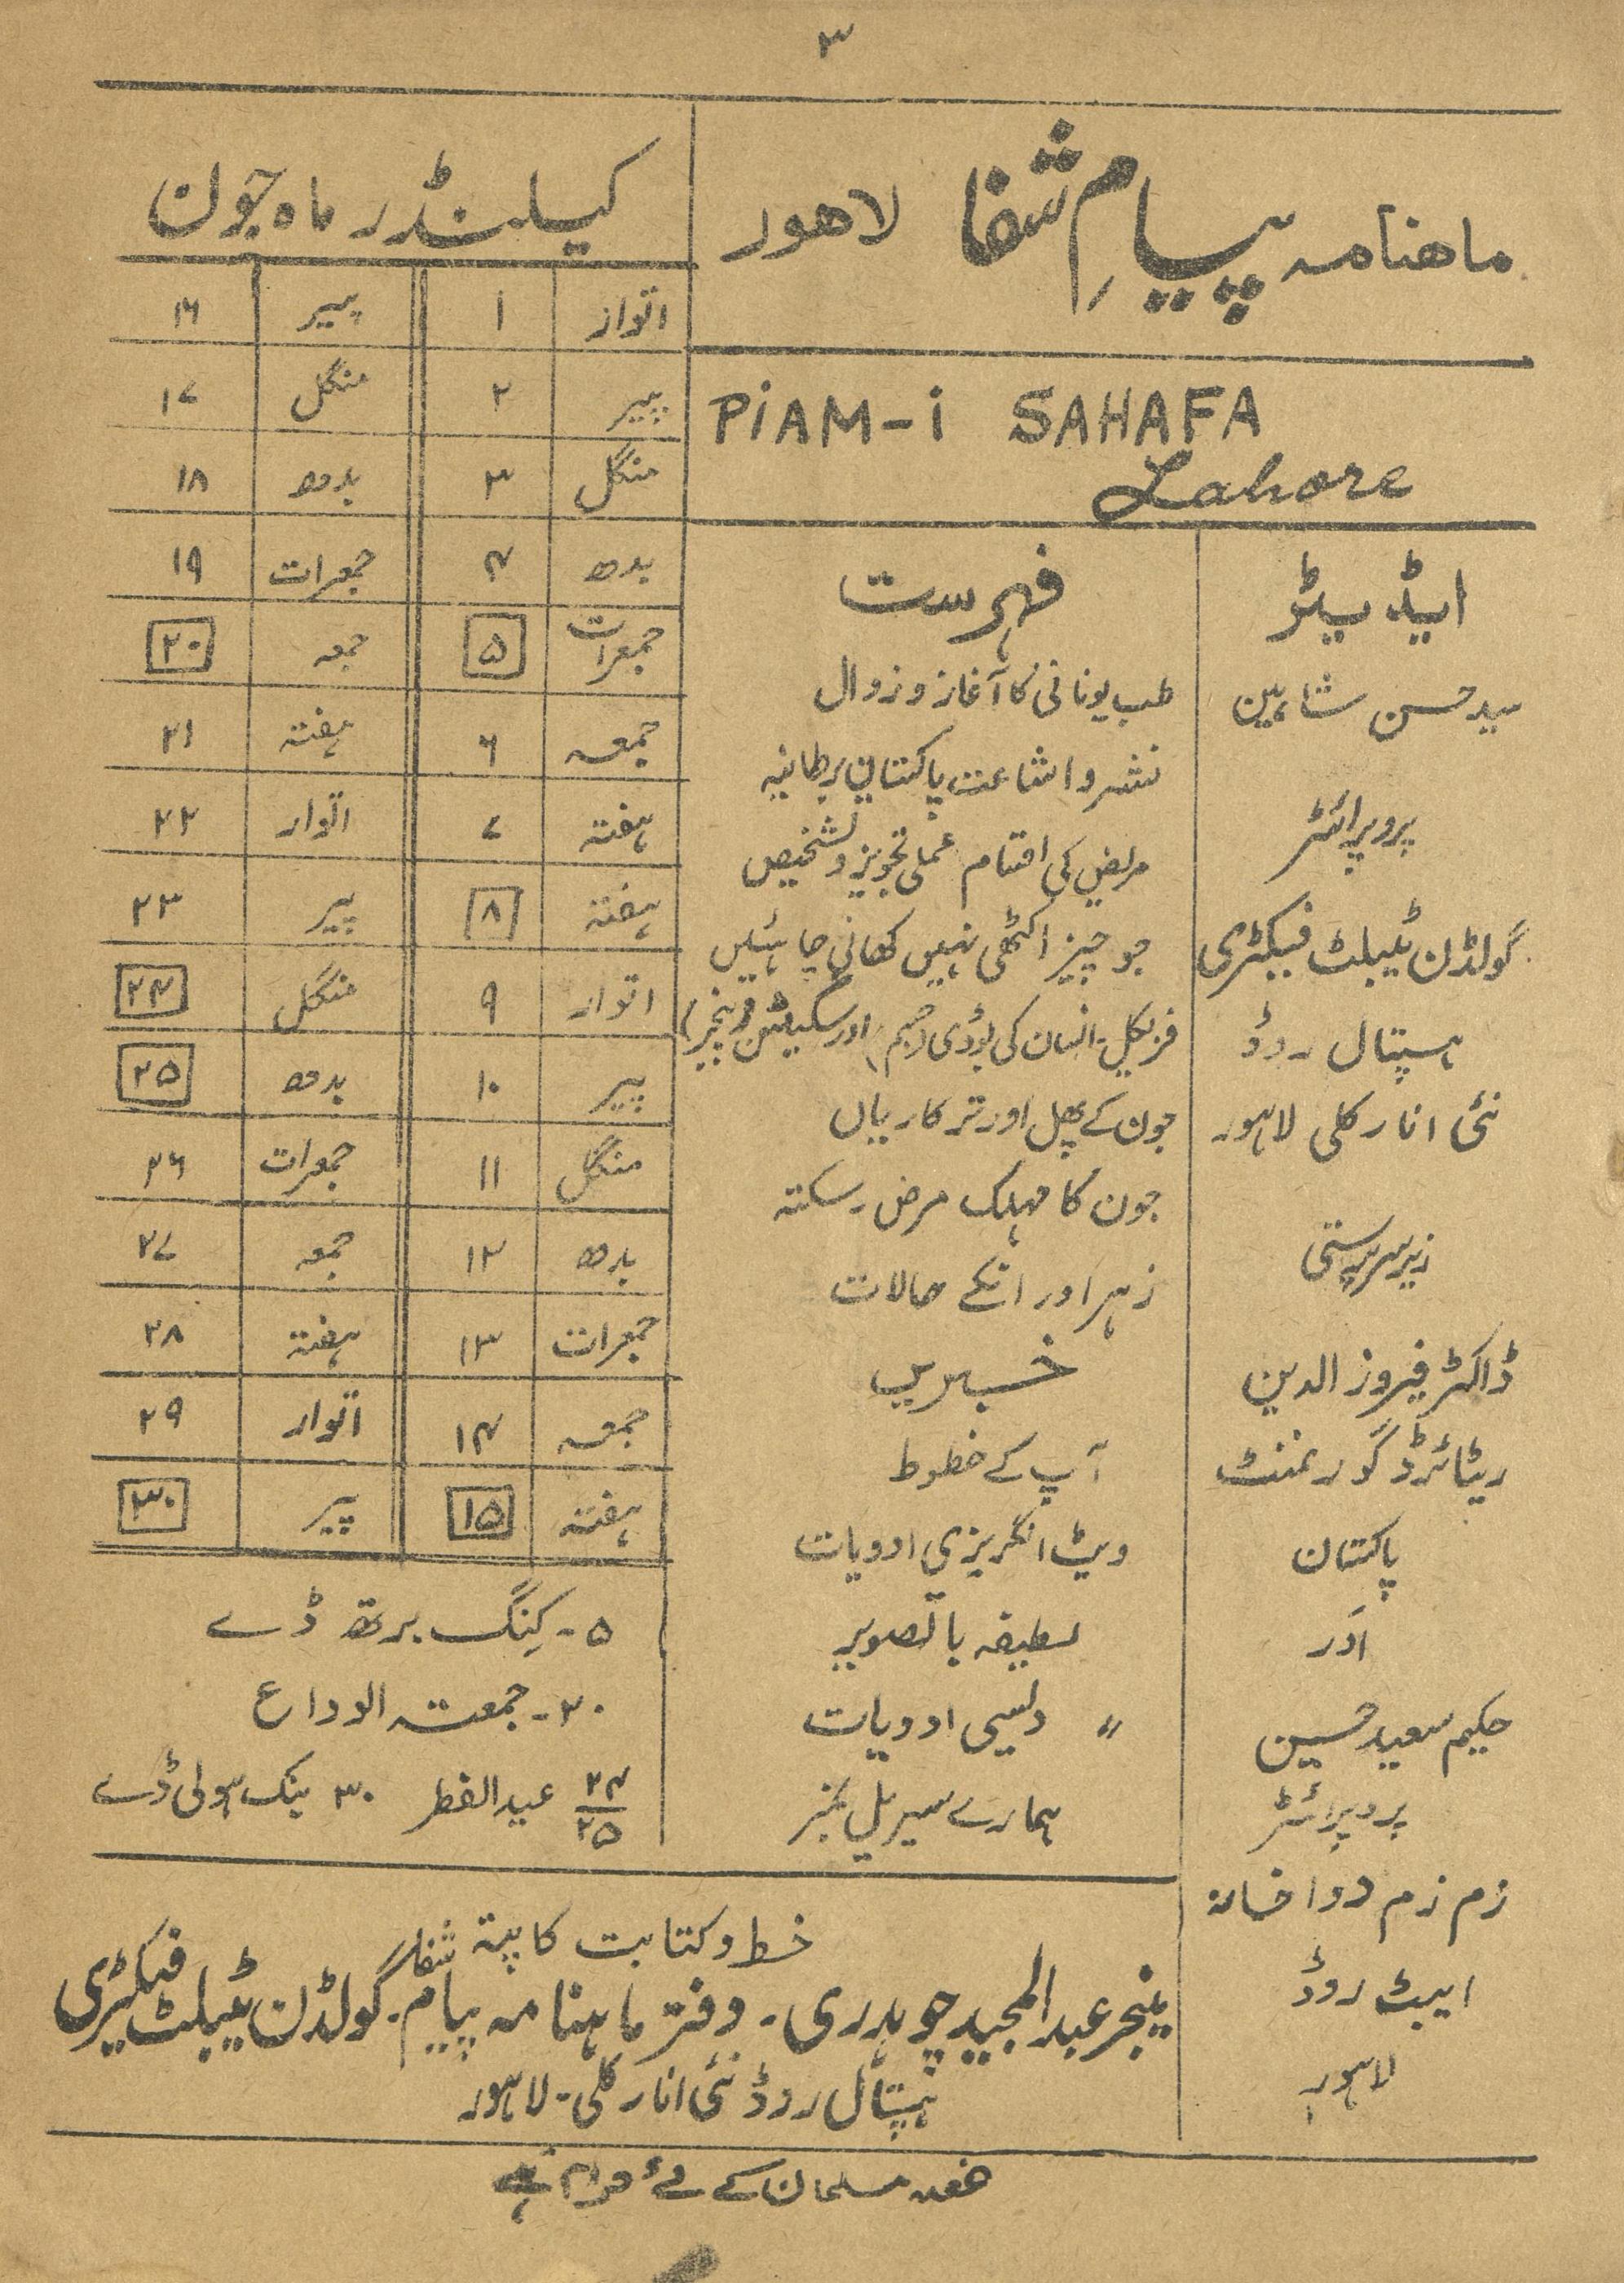 ۳
ماھنامہ پیامِ شفا لاھور
PiAM-i SAHAFA
Lahore
ایڈیٹر
سید حسن شاہین
پروپرائٹر
گولڈن ٹیبلٹ فیکٹری
ہسپتال روڈ
نئی انارکلی لاہور
زیر سرپرستی
ڈاکٹر فیروز الدین
ریٹائرڈ گورنمنٹ
پاکستان
اَور
حکیم سعید حسین
پروپرائٹر
زم زم دواخانہ
ایبٹ روڈ
لاہور
فہرست
طب یونانی کا آغاز و زوال
نشر و اشاعت پاکستانی برطانیہ
مریض کی اقتام عملی تجویز و تشخیص
جو چیز اکٹھی نہیں کھانی چاہئیں
فزیکل۔ انسان کی بوڈی (جسم) اور سکیلٹن
جون کے پھل اور ترکاریاں
جون کا مہلک مرض۔ سکتہ
زہر اور انکے حالات
خبریں
آپ کے خطوط
ویٹ انگریزی ادویات
لطیفہ باتصویر
〃 دلیسی ادویات
ہمارے سیریل نمبر
کیلنڈر ماہ جون
اتوار ۱ پیر ۱۶
پیر ۲ منگل ۱۷
منگل ۳ بدھ ۱۸
بدھ ۴ جمعرات ۱۹
جمعرات ۵ جمعہ ۲۰
جمعہ ۶ ہفتہ ۲۱
ہفتہ ۷ اتوار ۲۲
ہفتہ ۸ پیر ۲۳
اتوار ۹ منگل ۲۴
پیر ۱۰ بدھ ۲۵
منگل ۱۱ جمعرات ۲۶
بدھ ۱۲ جمعہ ۲۷
جمعرات ۱۳ ہفتہ ۲۸
جمعہ ۱۴ اتوار ۲۹
ہفتہ ۱۵ پیر ۳۰
۵۔ کِنگ برتھ ڈے
۲۰۔ جمعتہ الوداع
۲۴/۲۵ عید الفطر ۳۰ بنک ہولی ڈے
خط و کتابت کا پتہ
مینجر عبدالمجید چوہدری۔ دفتر ماہنامہ پیام شفا۔ گولڈن ٹیبلٹ فیکٹری
ہسپتال روڈ نئی انارکلی۔ لاہور
مسلمان کے لئے حرام ہے